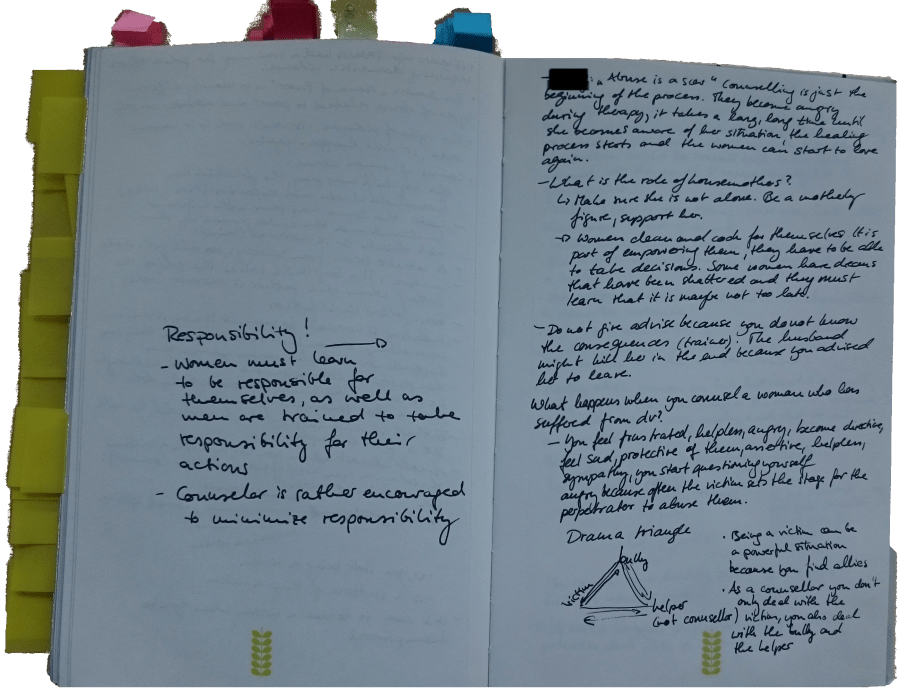 Responsibility!
- Women must learn
to be responsible for
themselves, as well as
men are trained to take
responsibility for their
actions
- Counselor is rather encouraged
to minimize responsibility
: "Abuse is a scar" Counselling is just the
beginning of the process. They become angry
during therapy, it takes a long, long time until
she becomes aware of her situation the healing
process starts and the women can start to love
again.
- What is the role of housemothers?
↳ Make sure she is not alone. Be a motherly
figure, support her.
→ Women clean and cook for themselves. It is
part of empowering them, they have to be able
to take decisions. Some women have dreams
that have been shattered and they must
learn that it is maybe not too late.
- Do not give advise because you do not know
the consequences (trainer). The husband
might kill her in the end because you advised
her to leave.
What happens when you counsel a woman who has
suffered from dv?
- You feel frustrated, helpless, angry, become directive,
feel sad, protective of them, assertive, helpless,
sympathy, you start questioning yourself
angry because often the victim sets the stage for the
perpetrator to abuse them.
Drama triangle
bully
victim
helper
(not counsellor)
· Being a victim can be
a powerful situation
because you find allies
· As a counsellor you don't
only deal with the
victim, you also deal
with the bully and
the helper